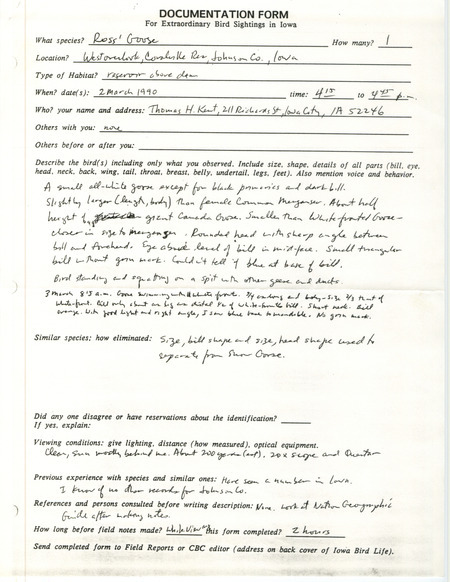 DOCUMENTATION FORM
For Extraordinary Bird Sightings in Iowa
What species? Ross' Goose How many? 1
Location? West overlook, Coralville Res, Johnson Co., Iowa
Type of Habitat? reservoir above dam
When? date(s): 2 March 1990 time: 4 15 to 4 45 p.m.
Who? your name and address: Thomas H. Kent, 211 Richards St, Iowa City, IA 52246
Others with you: none
Others before or after you:
Describe the bird(s) including only what you observed. Include size, shape, details of all parts (bill, eye,
head, neck, back, wing, tail, throat, breast, belly, undertail, legs, feet). Also mention voice and behavior.
A small all-white goose except for black primaries and dark bill.
Slightly larger (length, body) than female Common Merganser. About half
height of giant Canada Goose. Smaller than White-fronted Goose-
closer in size to merganser. Rounded head with sharp angle between
bill and forehead. Eye above level of bill in mid face. Small triangular
bill without grin mark. Couldn't tell if blue at base of bill.
Bird standing and squatting on a spit with other geese and ducks.
3 March 8:30 a.m. Goose swimming with White fronts. 3/4 as long and body-size 2/3 that of
White front. Bill only about as big as distal 1/2 of White-fronts bill. Short neck. Bill
orange. With good light and right angle, I saw blue base to mandible. No grin mark.
Similar species; how eliminated: Size, bill shape and size, head shape used to
separate from Snow Goose.
Did any one disagree or have reservations about the identification?
If yes, explain:
Viewing conditions: give lighting, distance (how measured), optical equipment.
Clear, sun mostly behind me. About 200 yards (est). 20x scope and Questar
Previous experience with species and similar ones: Have seen a number in Iowa.
I know of no other records for Johnson Co.
References and persons consulted before writing description: None. Look at National Geographic
Guide after making notes.
How long before field notes made? While viewing this form completed? 2 hours
Send completed form to Field Reports or CBC editor (address on back cover of Iowa Bird Life).